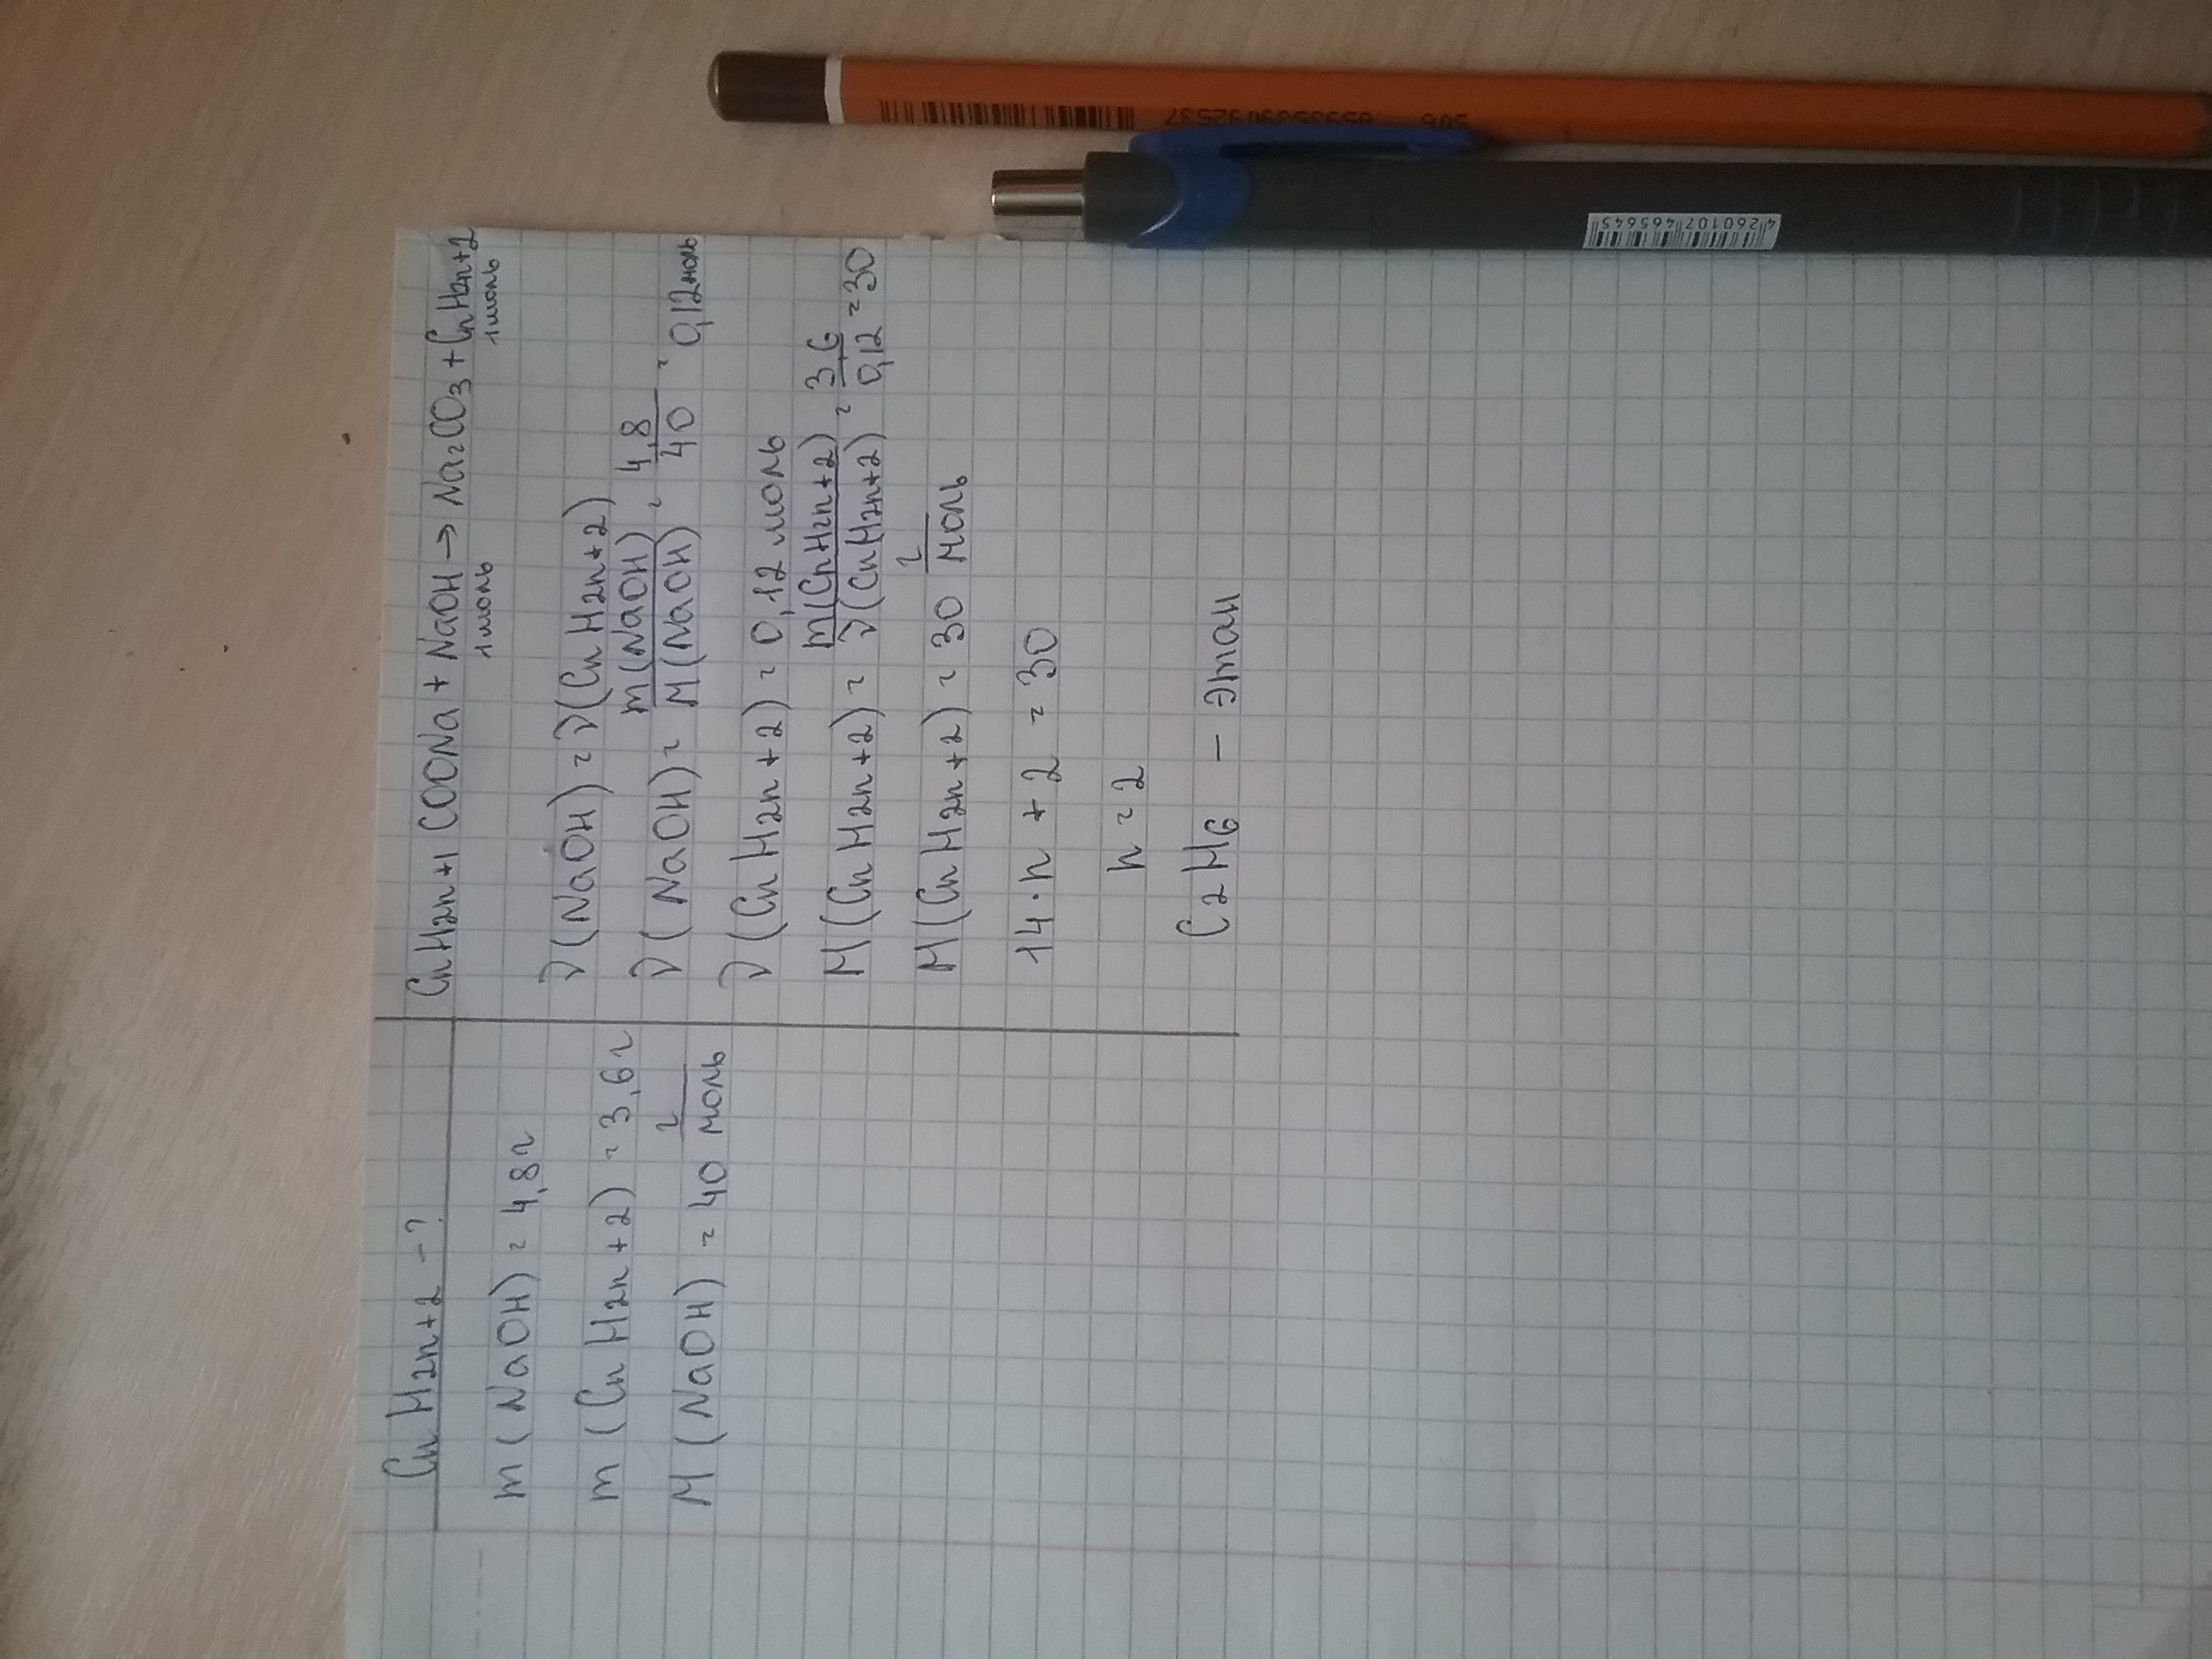 CnH2n+2 - ?
m (NaOH) = 4,8г
m (CnH2n+2) = 3,6г
M (NaOH) = 40 г/моль
CnH2n+1 COONa + NaOH → Na2CO3 + CnH2n+2
1 моль 1 моль
ν (NaOH) = ν (CnH2n+2)
ν (NaOH) = m (NaOH) / M (NaOH) = 4,8 / 40 = 0,12 моль
ν (CnH2n+2) = 0,12 моль
M (CnH2n+2) = m (CnH2n+2) / ν (CnH2n+2) = 3,6 / 0,12 = 30
M (CnH2n+2) = 30 г/моль
14 · n + 2 = 30
n = 2
C2H6 - этан
4 260107 465645